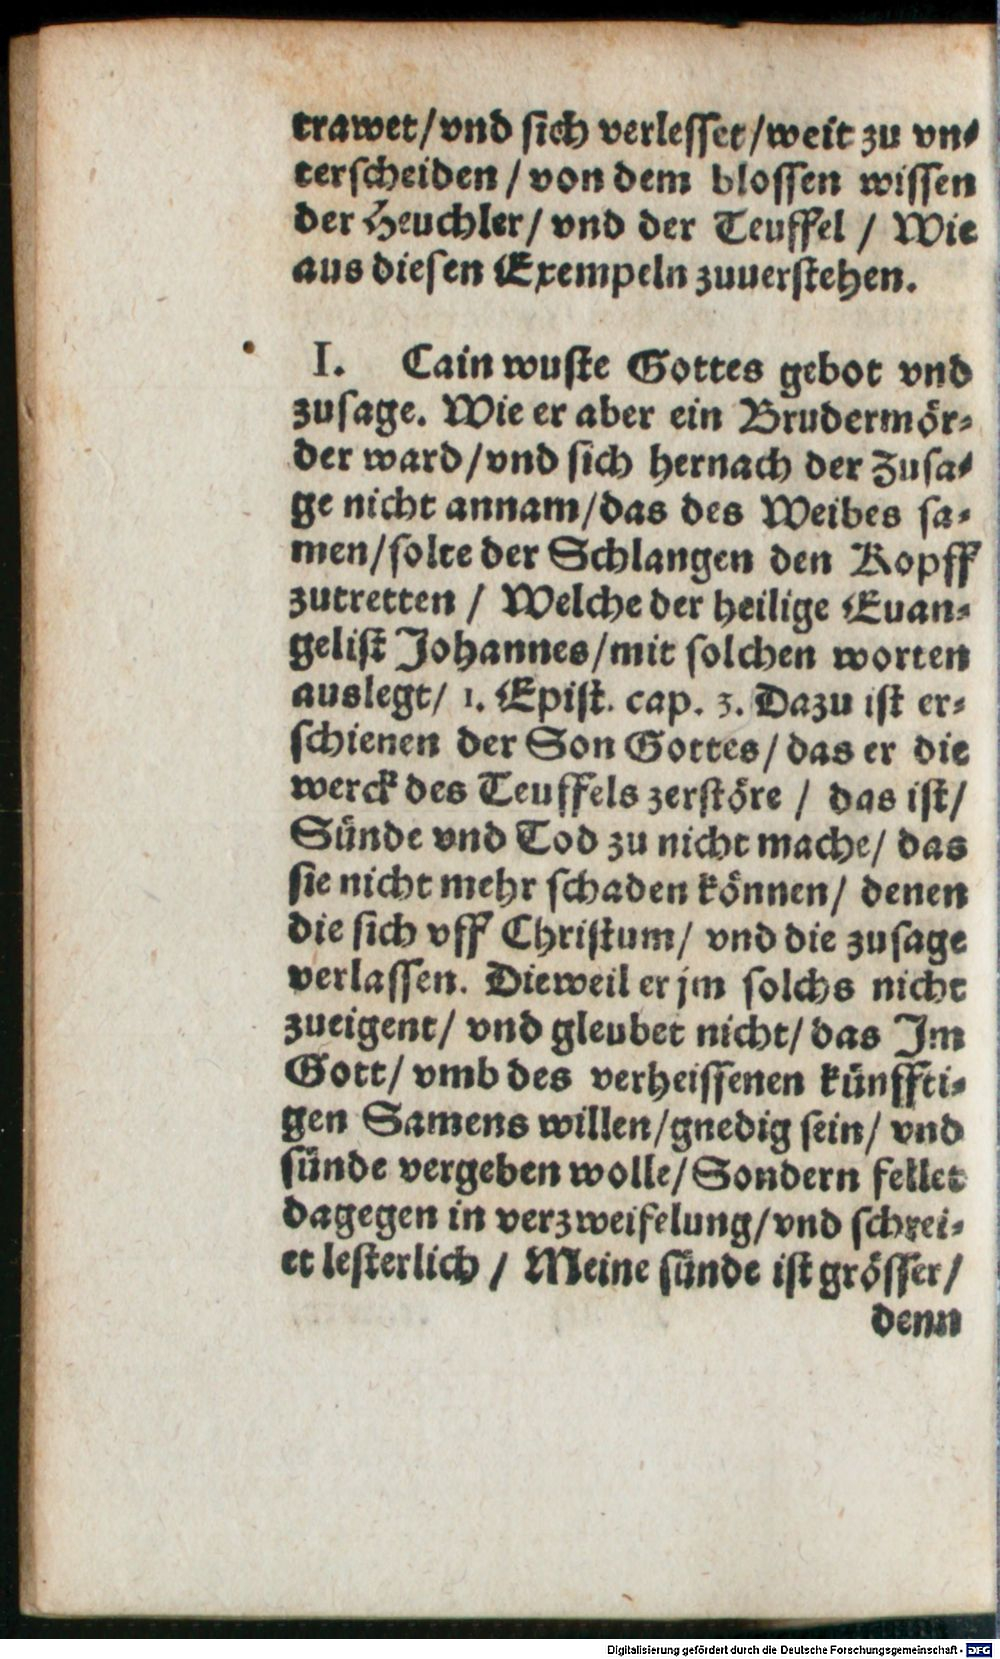 trawet/vnd sich verlesset/weit zu vn-
terscheiden/von dem blossen wissen
der Heuchler/vnd der Teuffel/Wie
aus diesen Exempeln zuuerstehen.
I. Cain wuste Gottes gebot vnd
zusage. Wie er aber ein Brudermör-
der ward/vnd sich hernach der Zusa-
ge nicht annam/das des Weibes sa-
men/solte der Schlangen den Kopff
zutretten/Welche der heilige Euan-
gelist Johannes/mit solchen worten
auslegt/1. Epist. cap. 3. Dazu ist er-
schienen der Son Gottes/das er die
werck des Teuffels zerstöre/das ist/
Sünde vnd Tod zu nicht mache/das
sie nicht mehr schaden können/denen
die sich vff Christum/vnd die zusage
verlassen. Dieweil er jm solchs nicht
zueigent/vnd gleubet nicht/das Jm
Gott/vmb des verheissenen künffti-
gen Samens willen/gnedig sein/vnd
sünde vergeben wolle/Sondern fellet
dagegen in verzweifelung/vnd schrei-
et lesterlich/Meine sünde ist grösser/
denn
Digitalisierung gefördert durch die Deutsche Forschungsgemeinschaft - DFG